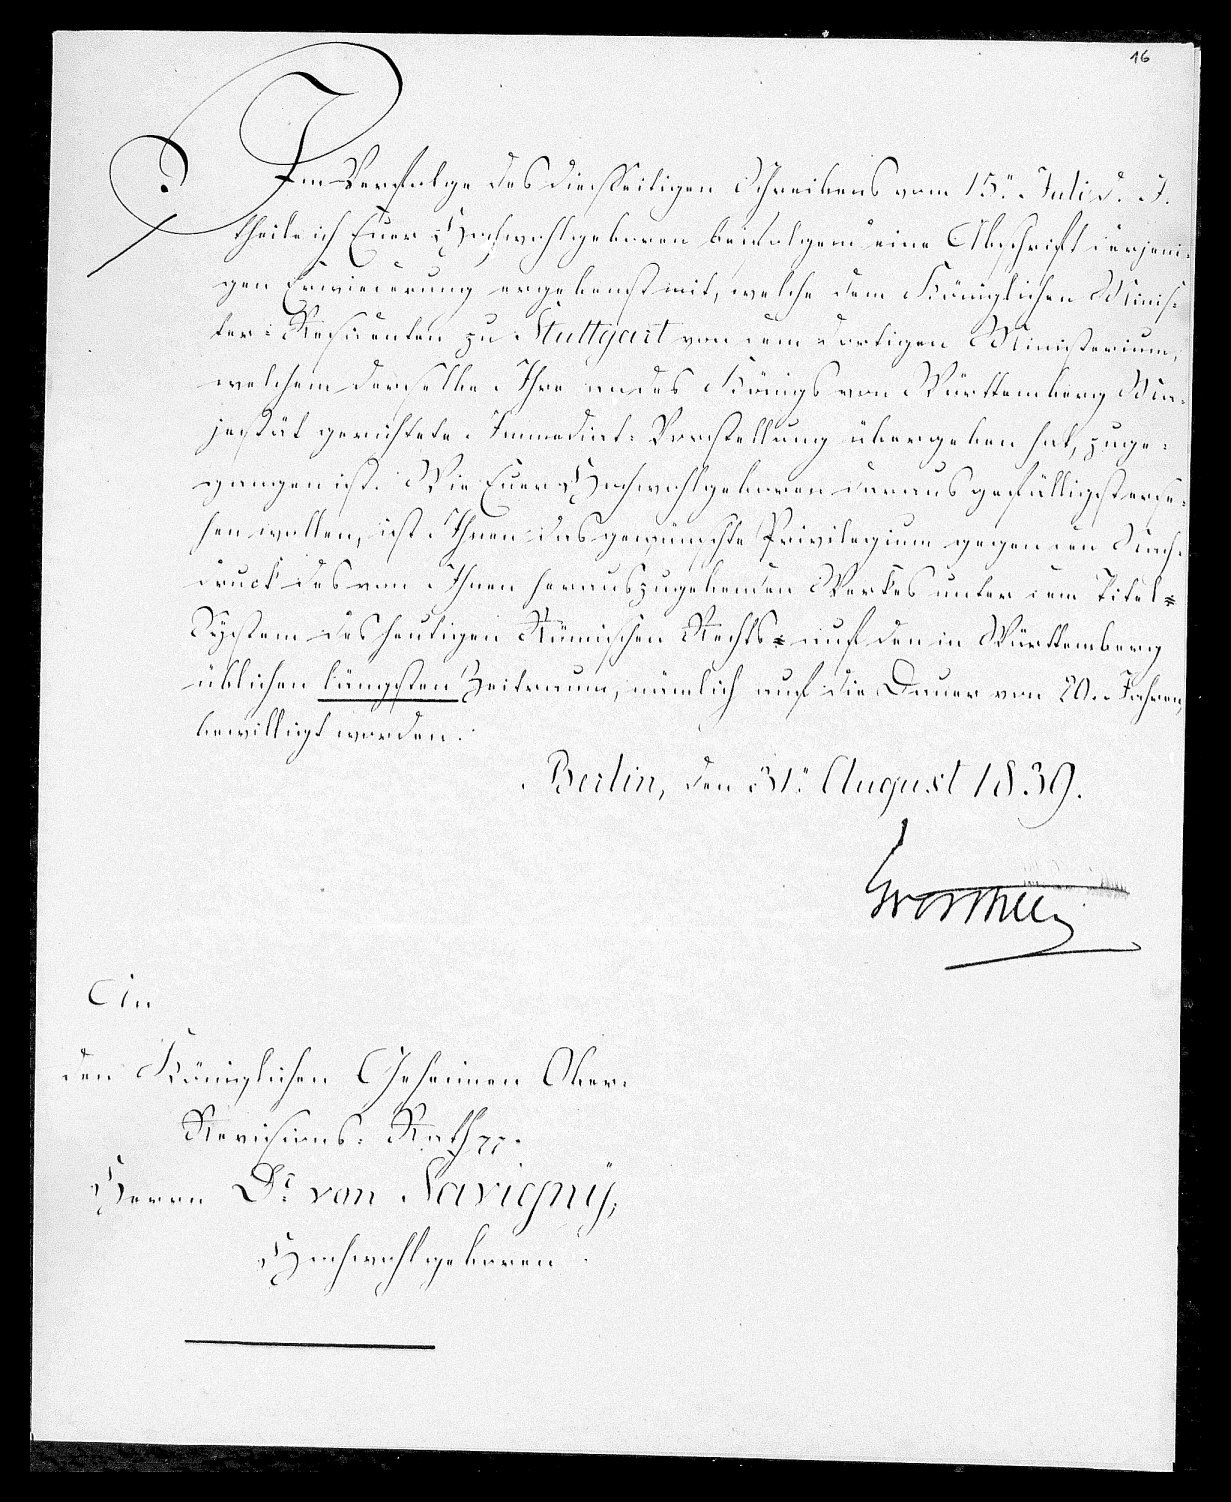 16
Im Verfolge des diesseitigen Schreibens vom 15n. Juli d. J.
theile ich Euer Hochwohlgeboren beifolgend eine Abschrift derjeni-
gen Erwiederung ergebenst mit, welche dem Königlichen Minis-
ter-Residenten zu Stuttgart von dem dortigen Ministerium,
welchem derselbe Ihre an des Königs von Württemberg Ma-
jestät gerichtete Immediat-Vorstellung übergeben hat, zuge-
gangen ist. Wie Euer Hochwohlgeboren daraus gefälligst erse-
hen wollen, ist Ihnen das gewünschte Privilegium gegen den Nach-
druck des von Ihnen herauszugebenden Werkes unter dem Titel =
System des heutigen Römischen Rechts = auf den in Württemberg
üblichen längsten Zeitraum, nämlich auf die Dauer von 20. Jahren,
bewilligt worden.
Berlin, den 31n. August 1839.
An
den Königlichen Geheimen Ober-
Revisions-Rath pp.
Herrn Dr. von Savigny,
Hochwohlgeboren.